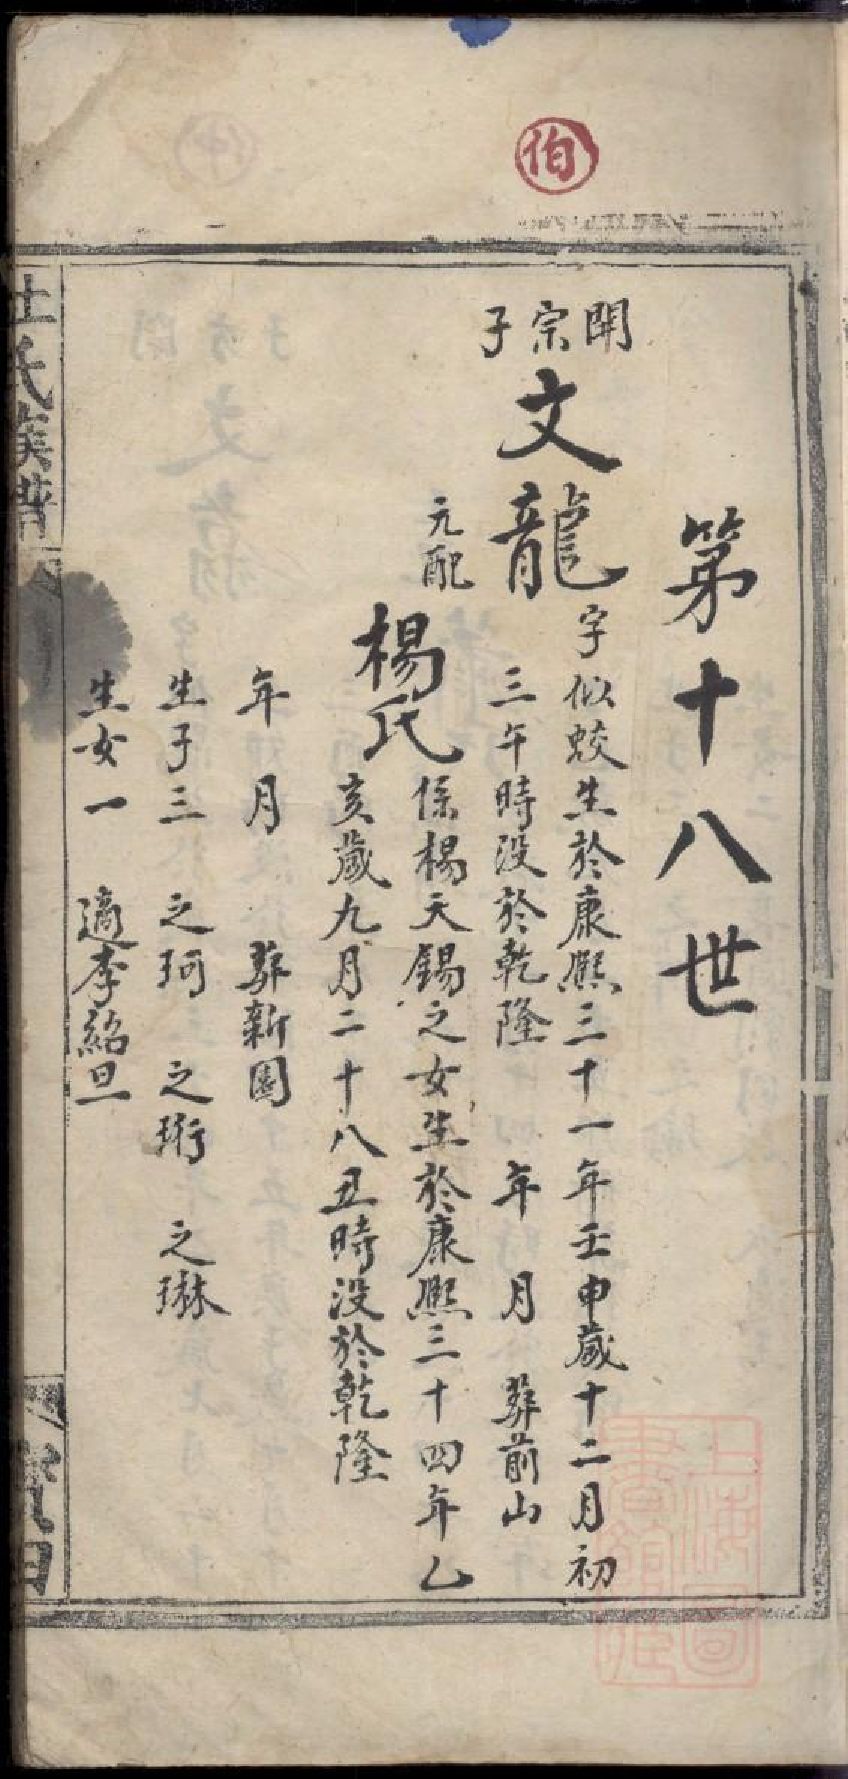 伯
第十八世
開宗子
文龍
字似蛟生於康熙三十一年壬申歲十二月初
三午時没於乾隆 年 月 葬前山
元配
楊氏
係楊天錫之女生於康熙三十四年乙
亥歲九月二十八丑時没於乾隆
年 月 葬新園
生子三 之珂 之珩 之琳
生女一 適李紹旦
氏族譜
上海圖書館藏